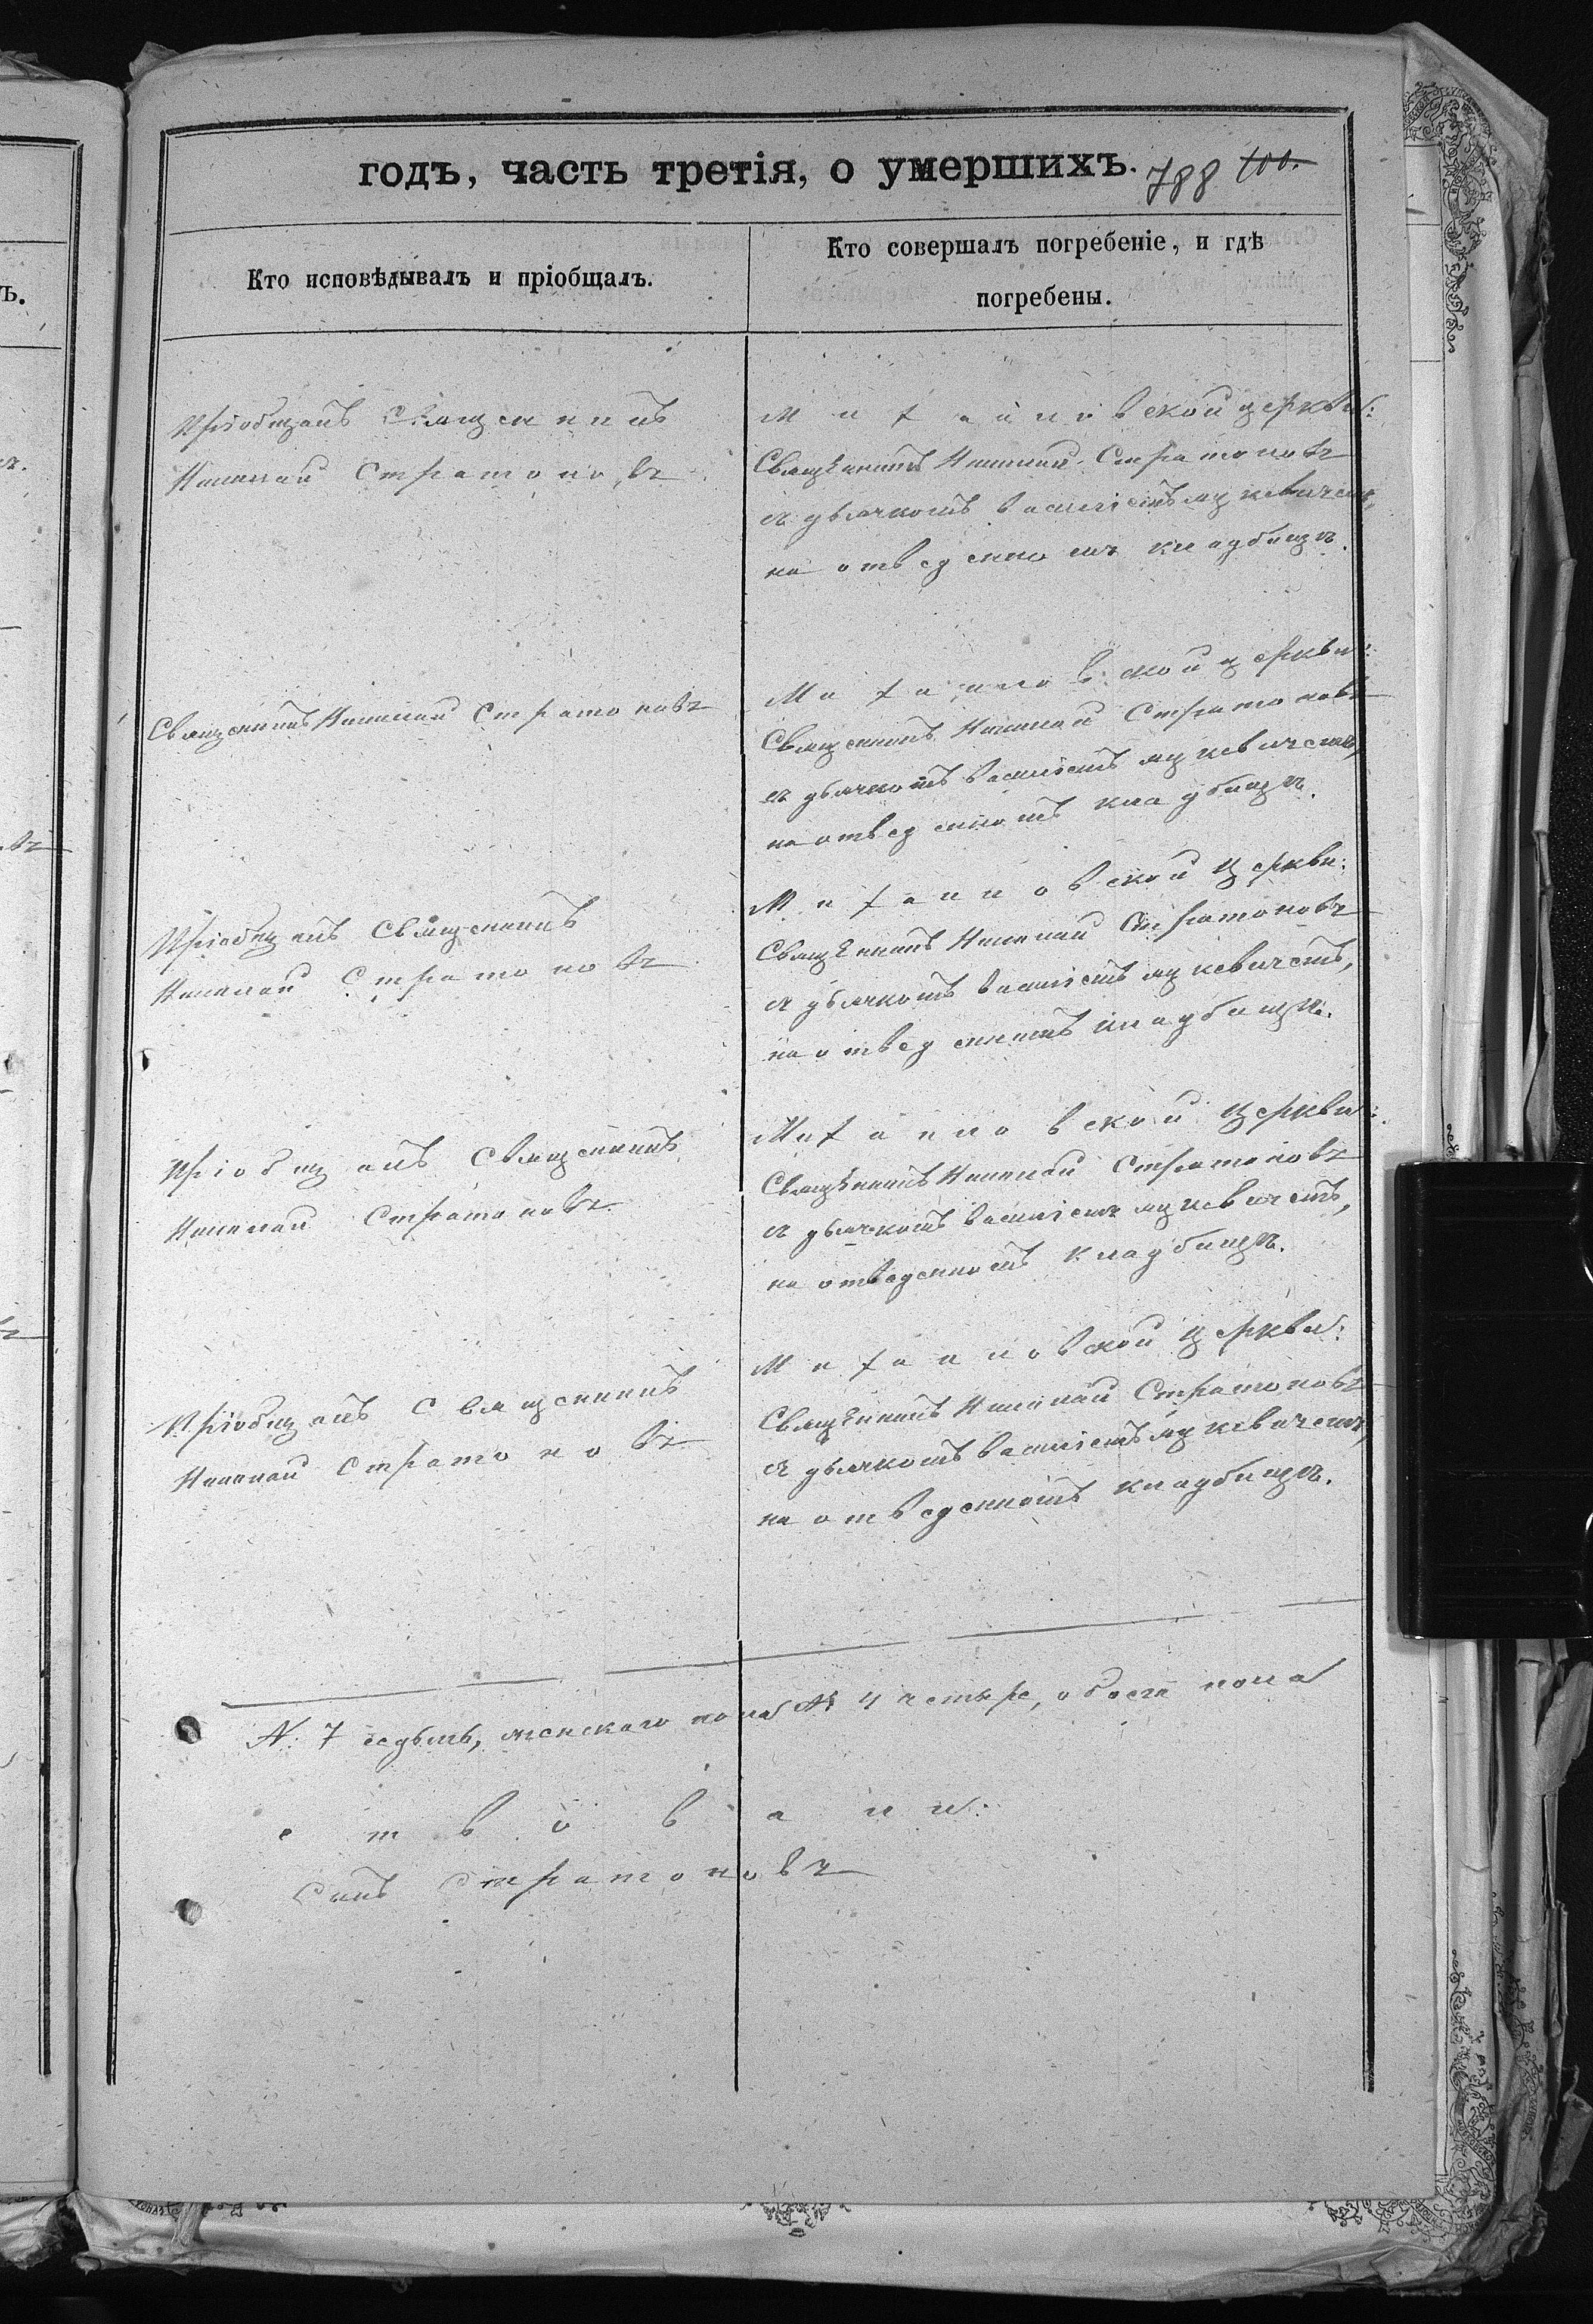 годъ, часть третія, о умершихъ.
788 100.
Кто исповѣдывалъ и пріобщалъ.
Кто совершалъ погребеніе, и гдѣ
погребены.
Пріобщалъ Священникъ
Николай Стратоновъ
Михайловской церкви:
Священникъ Николай Стратоновъ
съ дьячкомъ Василіемъ
на отведенномъ кладбищѣ.
Священникъ Николай Стратоновъ
Михайловской церкви:
Священникъ Николай Стратоновъ
съ дьячкомъ Василіемъ
на отведенномъ кладбищѣ.
Пріобщалъ Священникъ
Николай Стратоновъ
Михайловской церкви:
Священникъ Николай Стратоновъ
съ дьячкомъ Василіемъ
на отведенномъ кладбищѣ.
Пріобщалъ Священникъ
Николай Стратоновъ
Михайловской церкви:
Священникъ Николай Стратоновъ
съ дьячкомъ Василіемъ
на отведенномъ кладбищѣ.
Пріобщалъ Священникъ
Николай Стратоновъ
Михайловской церкви:
Священникъ Николай Стратоновъ
съ дьячкомъ Василіемъ
на отведенномъ кладбищѣ.
№ 7 седьмь, женскаго пола № 4 четыре, обоего пола
ствовали:
Стратоновъ